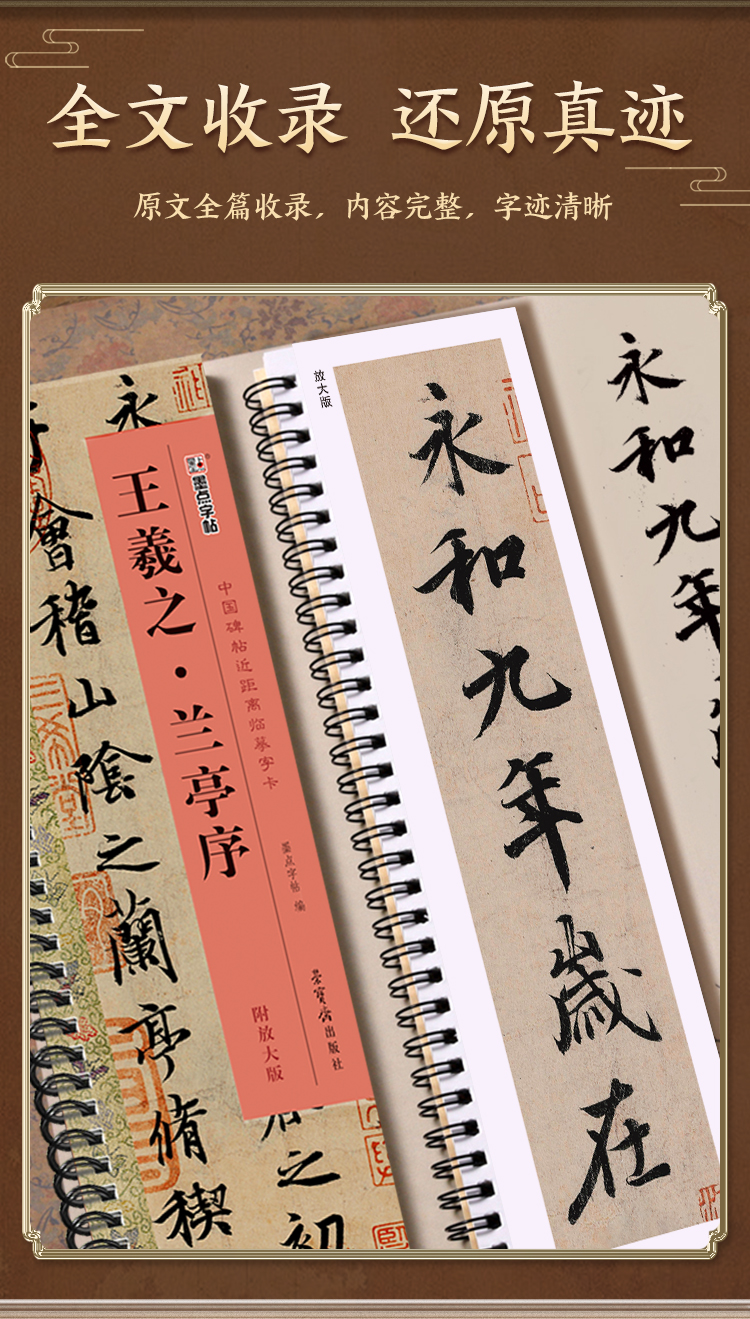 全文收录 还原真迹
原文全篇收录，内容完整，字迹清晰
永
會稽山陰之蘭亭脩稧
之初
墨点字帖
王羲之·兰亭序
中国碑帖近距离临摹字卡
墨点字帖 编
荣宝斋出版社
附放大版
放大版
永和九年歲在
永和九年